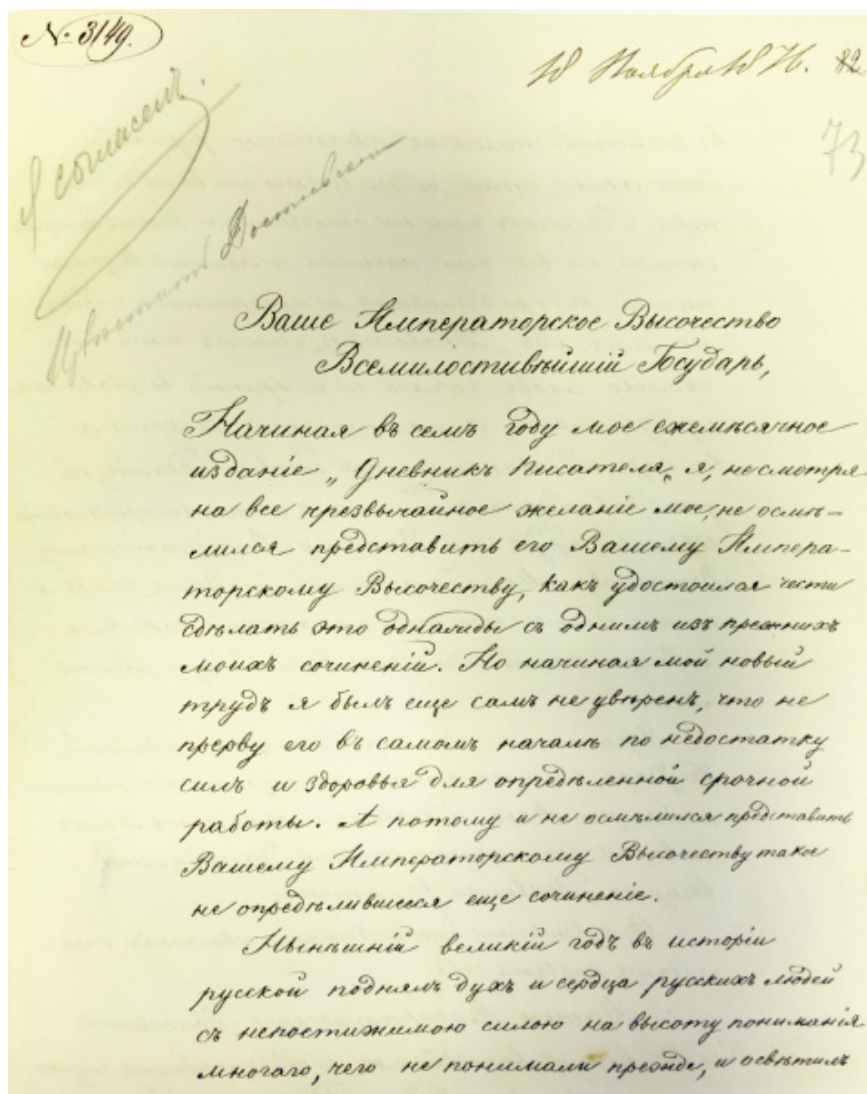 № 3149.
18 Ноября 1876. 82
73
Я согласенъ.
Достоевскаго
Ваше Императорское Высочество
Всемилостивѣйшій Государь,
Начиная въ семъ году мое ежемѣсячное
изданіе „Дневникъ Писателя„ я, не смотря
на все чрезвычайное желаніе мое, не осмѣ-
лился представить его Вашему Импера-
торскому Высочеству, какъ удостоился чести
сдѣлать это однажды съ однимъ изъ прежнихъ
моихъ сочиненій. Но начиная мой новый
трудъ я былъ еще самъ не увѣренъ, что не
прерву его въ самомъ началѣ по недостатку
силъ и здоровья для опредѣленной срочной
работы. А потому и не осмѣлился представить
Вашему Императорскому Высочеству такое
не опредѣлившееся еще сочиненіе.
Нынѣшній великій годъ въ исторіи
русской поднялъ духъ и сердца русскихъ людей
съ непостижимою силою на высоту пониманія
многаго, чего не понимали прежде, и освѣтилъ